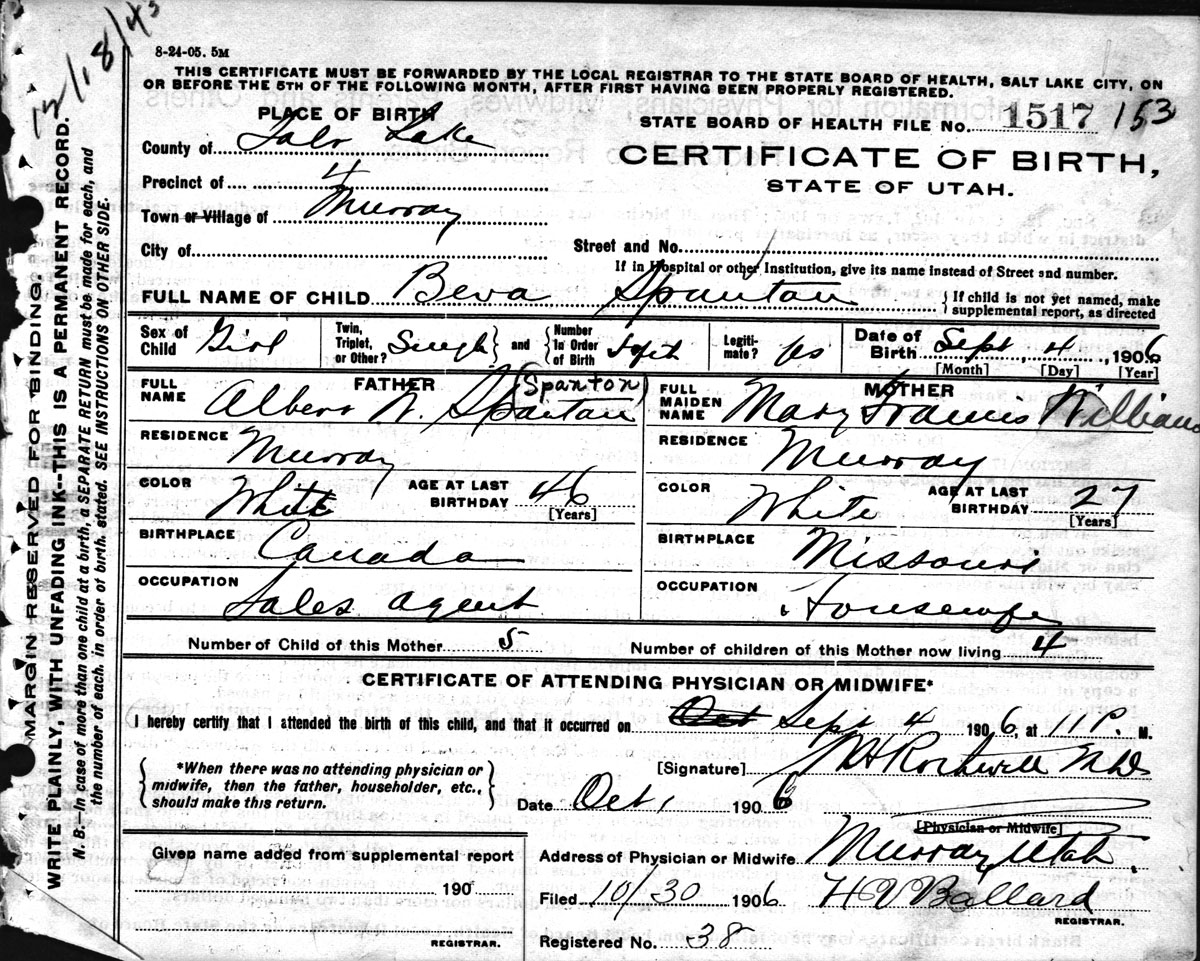 12/18/43
8-24-05. 5M
THIS CERTIFICATE MUST BE FORWARDED BY THE LOCAL REGISTRAR TO THE STATE BOARD OF HEALTH, SALT LAKE CITY, ON
OR BEFORE THE 5TH OF THE FOLLOWING MONTH, AFTER FIRST HAVING BEEN PROPERLY REGISTERED.
PLACE OF BIRTH
STATE BOARD OF HEALTH FILE No. 1517 153
County of Salt Lake
CERTIFICATE OF BIRTH,
STATE OF UTAH.
Precinct of 4
Town or Village of Murray
City of
Street and No.
If in Hospital or other Institution, give its name instead of Street and number.
FULL NAME OF CHILD Beva Spantan { If child is not yet named, make supplemental report, as directed
Sex of Child Girl Twin, Triplet, or Other? Single and Number In Order of Birth Legiti-mate? Yes Date of Birth Sept 4, 1906
[Month] [Day] [Year]
FATHER (Spanton) MOTHER
FULL NAME Albert N. Spantan FULL MAIDEN NAME Mary Frances Williams
RESIDENCE Murray RESIDENCE Murray
COLOR White AGE AT LAST BIRTHDAY 46 [Years] COLOR White AGE AT LAST BIRTHDAY 27 [Years]
BIRTHPLACE Canada BIRTHPLACE Missouri
OCCUPATION Sales agent OCCUPATION Housewife
Number of Child of this Mother 5 Number of children of this Mother now living 4
CERTIFICATE OF ATTENDING PHYSICIAN OR MIDWIFE*
I hereby certify that I attended the birth of this child, and that it occurred on Oct Sept 4 1906, at 11 P. M.
{ *When there was no attending physician or midwife, then the father, householder, etc., should make this return. }
[Signature] Rothwell M.D.
Date Oct 1 1906
[Physician or Midwife]
Given name added from supplemental report
190
REGISTRAR.
Address of Physician or Midwife Murray Utah
Filed 10/30 1906 H V Ballard
REGISTRAR.
Registered No. 38
MARGIN RESERVED FOR BINDING.
WRITE PLAINLY, WITH UNFADING INK--THIS IS A PERMANENT RECORD.
N. B.—In case of more than one child at a birth, a SEPARATE RETURN must be made for each, and
the number of each, in order of birth, stated. SEE INSTRUCTIONS ON OTHER SIDE.